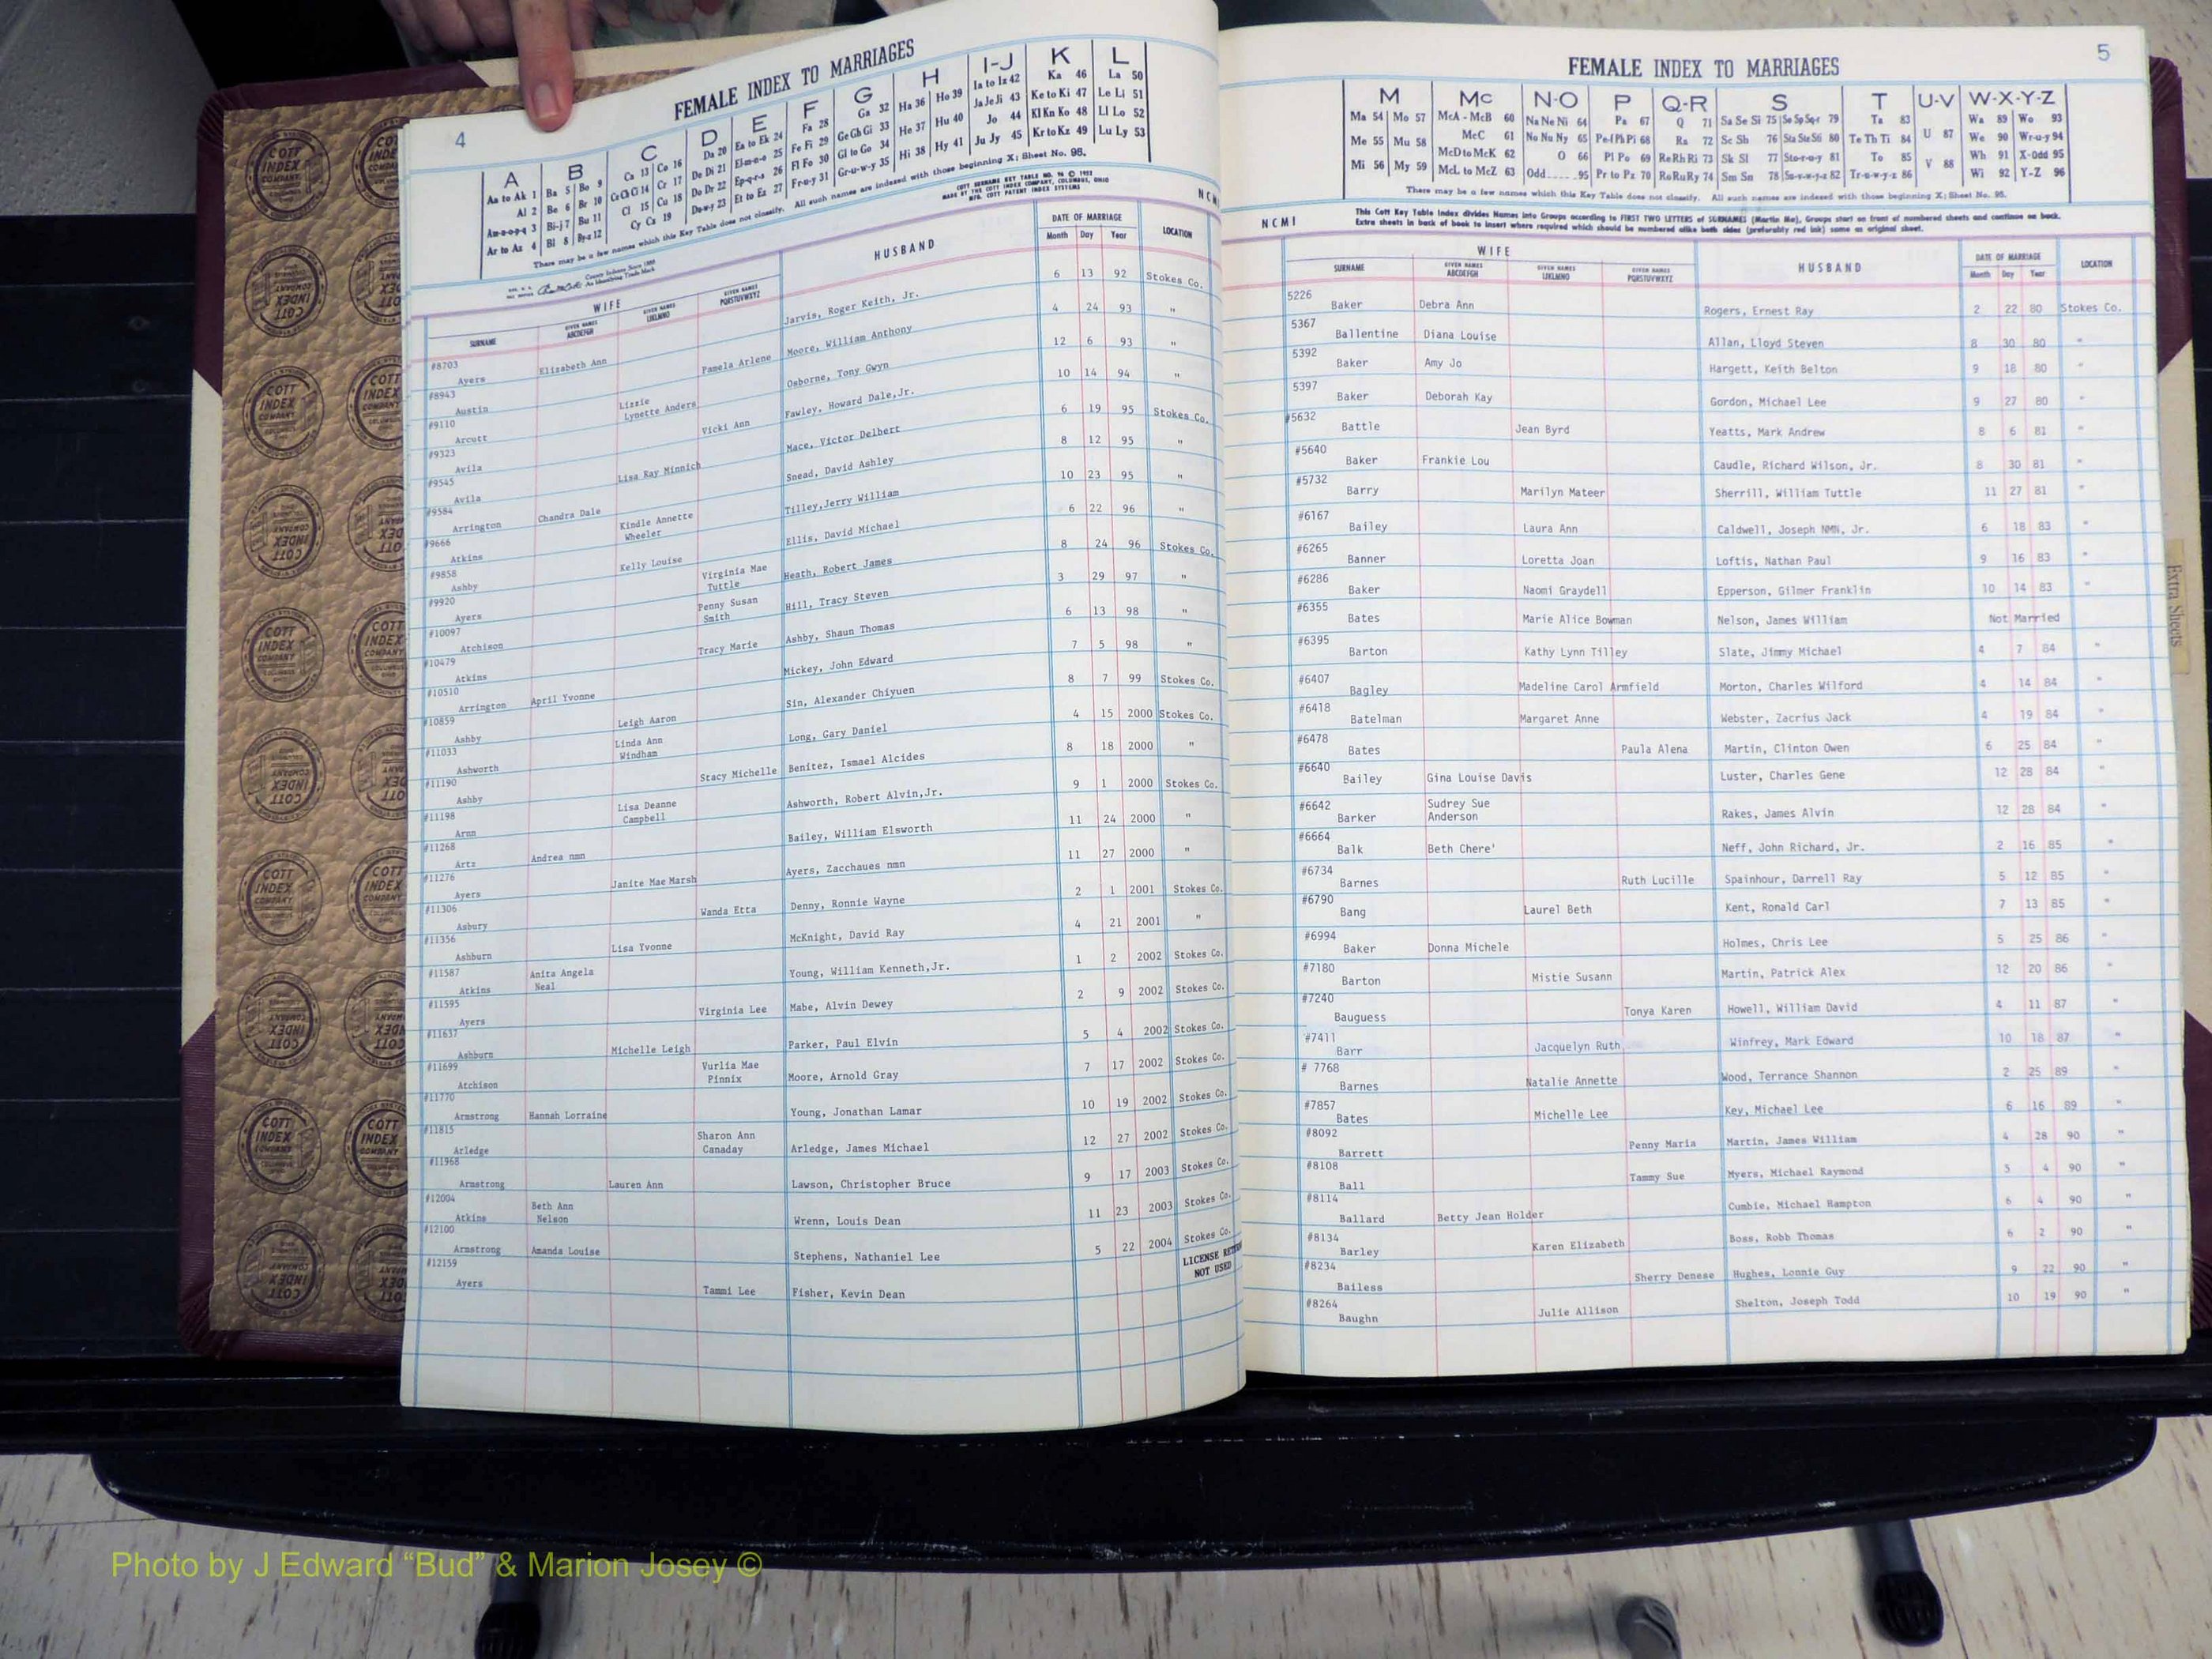 4
FEMALE INDEX TO MARRIAGES
A B C D E F G H I-J K L
Aa to Ak 1 Ba 5 Be 9 Ca 13 Co 16 Da 20 Ea to Ek 24 Fa 28 Ga 32 Ha 36 Ho 39 Ia to Iz 42 Ka 46 La 50
Al 2 Be 6 Br 10 CeChCi 14 Cr 17 De Di 21 El-m-n-o 25 Fe Fi 29 Ge Gh Gi 33 He 37 Hu 40 Ja Je Ji 43 Ke to Ki 47 Le Li 51
Am-n-o-p-q 3 Bi-j 7 Bu 11 Cl 15 Cu 18 Do Dr 22 Ep-q-r-s 26 Fl Fo 30 Gl to Go 34 Hi 38 Hy 41 Jo 44 Kl Kn Ko 48 Ll Lo 52
Ar to Az 4 Bl 8 By-z 12 Cy Cz 19 Du-w-y 23 Et to Ez 27 Fr-u-y 31 Gr-u-w-y 35 Ju Jy 45 Kr to Kz 49 Lu Ly 53
There may be a few names which this Key Table does not classify. All such names are indexed with those beginning X; Sheet No. 95.
COTT SURNAME KEY TABLE NO. 96 © 1953
MADE BY THE COTT INDEX COMPANY, COLUMBUS, OHIO
MFR. COTT PATENT INDEX SYSTEMS
WIFE HUSBAND DATE OF MARRIAGE LOCATION
SURNAME GIVEN NAMES ABCDEFGH GIVEN NAMES IJKLMNO GIVEN NAMES PQRSTUVWXYZ Month Day Year
#8703 Ayers Elizabeth Ann Jarvis, Roger Keith, Jr. 6 13 92 Stokes Co.
#8943 Austin Pamela Arlene Moore, William Anthony 4 24 93 "
#9110 Arcutt Lizzie Lynette Anders Osborne, Tony Gwyn 12 6 93 "
#9323 Avila Vicki Ann Fawley, Howard Dale,Jr. 10 14 94 "
#9545 Avila Lisa Ray Minnich Mace, Victor Delbert 6 19 95 Stokes Co.
#9584 Arrington Chandra Dale Snead, David Ashley 8 12 95 "
#9666 Atkins Kindle Annette Wheeler Tilley,Jerry William 10 23 95 "
#9858 Ashby Kelly Louise Ellis, David Michael 6 22 96 "
#9920 Ayers Virginia Mae Tuttle Heath, Robert James 8 24 96 Stokes Co.
#10097 Atchison Penny Susan Smith Hill, Tracy Steven 3 29 97 "
#10479 Atkins Tracy Marie Ashby, Shaun Thomas 6 13 98 "
#10510 Arrington April Yvonne Mickey, John Edward 7 5 98 "
#10859 Ashby Leigh Aaron Sin, Alexander Chiyuen 8 7 99 Stokes Co.
#11033 Ashworth Linda Ann Windham Long, Gary Daniel 4 15 2000 Stokes Co.
#11190 Ashby Stacy Michelle Benitez, Ismael Alcides 8 18 2000 "
#11198 Arnn Lisa Deanne Campbell Ashworth, Robert Alvin,Jr. 9 1 2000 Stokes Co.
#11268 Artz Andrea nmn Bailey, William Elsworth 11 24 2000 "
#11276 Ayers Janite Mae Marsh Ayers, Zacchaues nmn 11 27 2000 "
#11306 Asbury Wanda Etta Denny, Ronnie Wayne 2 1 2001 Stokes Co.
#11356 Ashburn Lisa Yvonne McKnight, David Ray 4 21 2001 "
#11587 Atkins Anita Angela Neal Young, William Kenneth,Jr. 1 2 2002 Stokes Co.
#11595 Ayers Virginia Lee Mabe, Alvin Dewey 2 9 2002 Stokes Co.
#11637 Ashburn Michelle Leigh Parker, Paul Elvin 5 4 2002 Stokes Co.
#11699 Atchison Vurlia Mae Pinnix Moore, Arnold Gray 7 17 2002 Stokes Co.
#11770 Armstrong Hannah Lorraine Young, Jonathan Lamar 10 19 2002 Stokes Co.
#11815 Arledge Sharon Ann Canaday Arledge, James Michael 12 27 2002 Stokes Co.
#11968 Armstrong Lauren Ann Lawson, Christopher Bruce 9 17 2003 Stokes Co.
#12004 Atkins Beth Ann Nelson Wrenn, Louis Dean 11 23 2003 Stokes Co.
#12100 Armstrong Amanda Louise Stephens, Nathaniel Lee 5 22 2004 Stokes Co.
#12159 Ayers Tammi Lee Fisher, Kevin Dean LICENSE RETURN NOT USED
5
FEMALE INDEX TO MARRIAGES
M Mc N-O P Q-R S T U-V W-X-Y-Z
Ma 54 Mo 57 McA - McB 60 Na Ne Ni 64 Pa 67 Q 71 Sa Se Si 75 Se Sp Sq-r 79 Ta 83 U 87 Wa 89 Wo 93
Me 55 Mu 58 McC 61 No Nu Ny 65 Pe-f Ph Pi 68 Ra 72 Sc Sh 76 Sta Ste Sti 80 Te Th Ti 84 V 88 We 90 Wr-u-y 94
Mi 56 My 59 McD to McK 62 O 66 Pl Po 69 Re Rh Ri 73 Sk Sl 77 Sto-r-u-y 81 To 85 Wh 91 X-Odd 95
McL to McZ 63 Odd.....95 Pr to Pz 70 Ro Ru Ry 74 Sm Sn 78 Su-v-w-y-z 82 Tr-u-w-y-z 86 Wi 92 Y-Z 96
There may be a few names which this Key Table does not classify. All such names are indexed with those beginning X; Sheet No. 95.
NCMI This Cott Key Table Index divides Names into Groups according to FIRST TWO LETTERS of SURNAMES (Martin Ma), Groups start on front of numbered sheets and continue on back.
Extra sheets in back of book to insert where required which should be numbered alike both sides (preferably red ink) same as original sheet.
WIFE HUSBAND DATE OF MARRIAGE LOCATION
SURNAME GIVEN NAMES ABCDEFGH GIVEN NAMES IJKLMNO GIVEN NAMES PQRSTUVWXYZ Month Day Year
5226 Baker Debra Ann Rogers, Ernest Ray 2 22 80 Stokes Co.
5367 Ballentine Diana Louise Allan, Lloyd Steven 8 30 80 "
5392 Baker Amy Jo Hargett, Keith Belton 9 18 80 "
5397 Baker Deborah Kay Gordon, Michael Lee 9 27 80 "
#5632 Battle Jean Byrd Yeatts, Mark Andrew 8 6 81 "
#5640 Baker Frankie Lou Caudle, Richard Wilson, Jr. 8 30 81 "
#5732 Barry Marilyn Mateer Sherrill, William Tuttle 11 27 81 "
#6167 Bailey Laura Ann Caldwell, Joseph NMN, Jr. 6 18 83 "
#6265 Banner Loretta Joan Loftis, Nathan Paul 9 16 83 "
#6286 Baker Naomi Graydell Epperson, Gilmer Franklin 10 14 83 "
#6355 Bates Marie Alice Bowman Nelson, James William Not Married
#6395 Barton Kathy Lynn Tilley Slate, Jimmy Michael 4 7 84 "
#6407 Bagley Madeline Carol Armfield Morton, Charles Wilford 4 14 84 "
#6418 Batelman Margaret Anne Webster, Zacrius Jack 4 19 84 "
#6478 Bates Paula Alena Martin, Clinton Owen 6 25 84 "
#6640 Bailey Gina Louise Davis Luster, Charles Gene 12 28 84 "
#6642 Barker Sudrey Sue Anderson Rakes, James Alvin 12 28 84 "
#6664 Balk Beth Chere' Neff, John Richard, Jr. 2 16 85 "
#6734 Barnes Ruth Lucille Spainhour, Darrell Ray 5 12 85 "
#6790 Bang Laurel Beth Kent, Ronald Carl 7 13 85 "
#6994 Baker Donna Michele Holmes, Chris Lee 5 25 86 "
#7180 Barton Mistie Susann Martin, Patrick Alex 12 20 86 "
#7240 Bauguess Tonya Karen Howell, William David 4 11 87 "
#7411 Barr Jacquelyn Ruth Winfrey, Mark Edward 10 18 87 "
# 7768 Barnes Natalie Annette Wood, Terrance Shannon 2 25 89 "
#7857 Bates Michelle Lee Key, Michael Lee 6 16 89 "
#8092 Barrett Penny Maria Martin, James William 4 28 90 "
#8108 Ball Tammy Sue Myers, Michael Raymond 5 4 90 "
#8114 Ballard Betty Jean Holder Cumbie, Michael Hampton 6 4 90 "
#8134 Barley Karen Elizabeth Boss, Robb Thomas 6 2 90 "
#8234 Bailess Sherry Denese Hughes, Lonnie Guy 9 22 90 "
#8264 Baughn Julie Allison Shelton, Joseph Todd 10 19 90 "
Extra Sheets
COTT INDEX COMPANY
Photo by J Edward “Bud” & Marion Josey ©